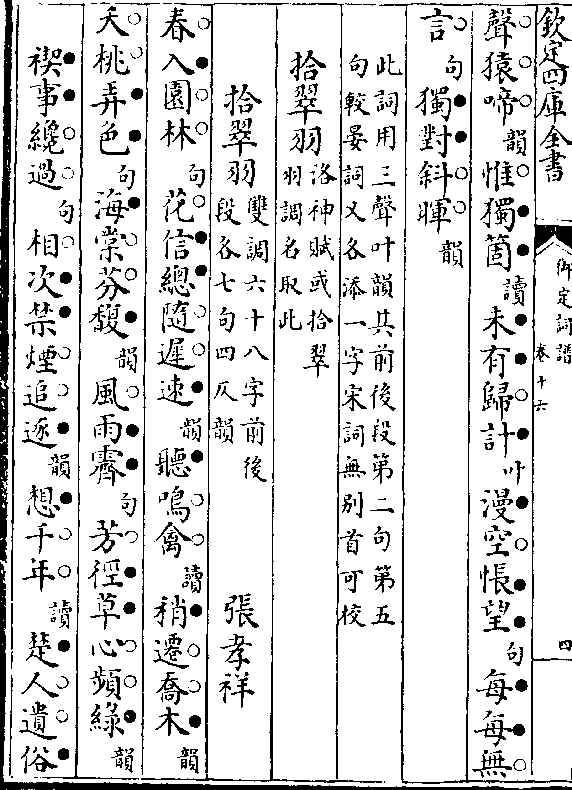 欽定四庫全書
御定詞譜
卷十六
四
聲猿啼韻惟獨箇讀未有歸計叶漫空悵望句每每無
言句獨對斜暉韻
此詞用三聲叶韻其前後段第二句第五
句較晏詞又各添一字宋詞無別首可校
拾翠羽洛神賦或拾翠
羽調名取此
拾翠羽雙調六十八字前後
段各七句四仄韻 張孝祥
春入園林句花信總隨遲速韻聽鳴禽讀稍遷喬木韻
夭桃弄色句海棠芬馥韻風雨霽句芳徑草心頻綠韻
禊事纔過句相次禁煙追逐韻想千年讀楚人遺俗